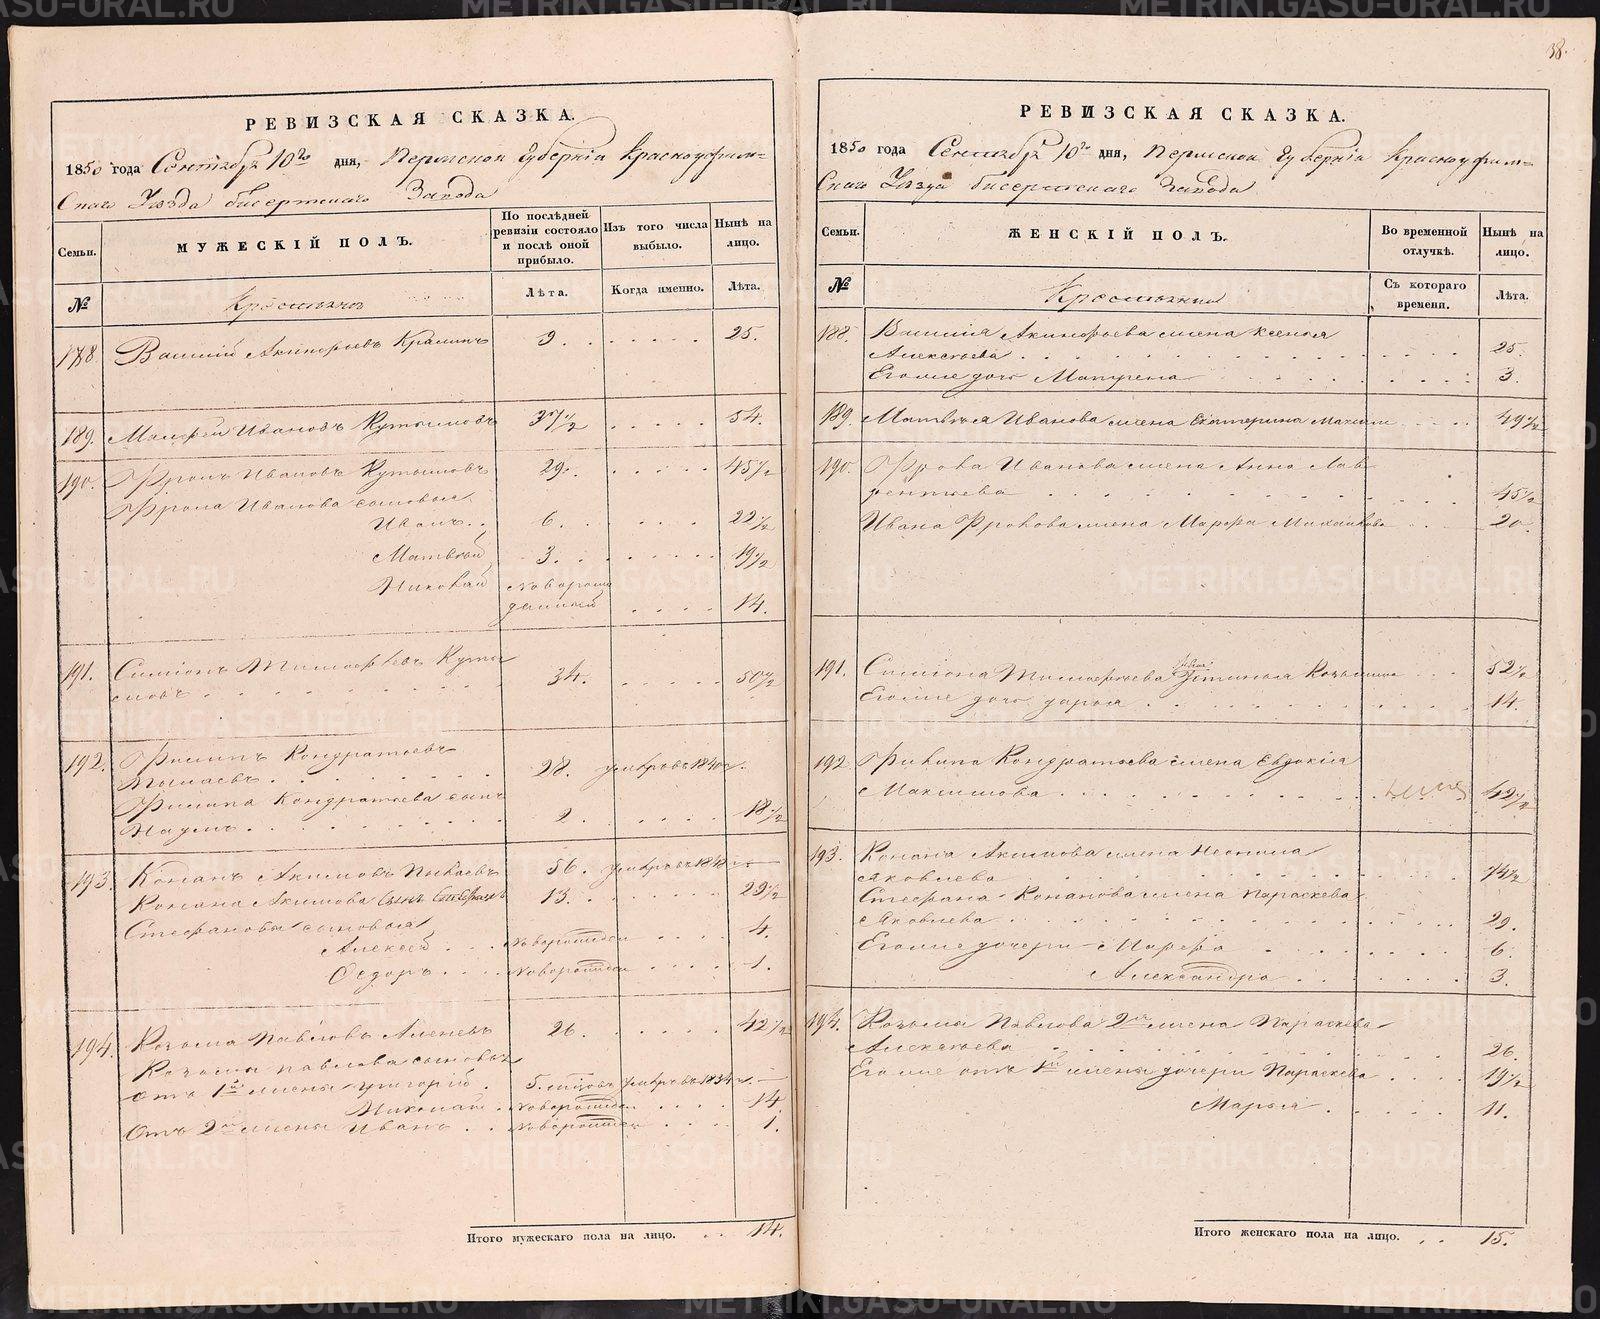 38.
РЕВИЗСКАЯ СКАЗКА.
1850 года Сентября 10го дня, Пермской Губернiи Красноуфим-
скаго Уѣзда Бисертскаго Завода
Семьи.
МУЖЕСКIЙ ПОЛЪ.
По послѣдней ревизiи состояло и послѣ оной прибыло.
Изъ того числа выбыло.
Нынѣ на лицо.
№
Крестьяне
Лѣта.
Когда именно.
Лѣта.
188. Василiй Акинфьевъ 9. 25.
189. Матфей Ивановъ Кутымовъ 37 1/2 54.
190. Фролъ Ивановъ Кутымовъ 29. 45 1/2
Фрола Иванова сыновья
Иванъ 6. 22 1/2
Матвѣй 3. 19 1/2
Николай новорож
денный 14.
191. Симiонъ Тимофѣевъ Куты
мовъ 34. 50 1/2
192. Филипъ Кондратьевъ
28. умеръ въ 1840 г.
Филипа Кондратьева сынъ
Наумъ 2. 18 1/2
193. Конанъ Акимовъ 56. умеръ въ
Конана Акимова сынъ 13. 29 1/2
Стефановы сыновья
Алексей новорожден 4.
Федоръ новорожден 1.
194. Козьма Павловъ 26. 42 1/2
Козьмы Павлова сыновья
отъ 1й жены Григорiй 5. умеръ въ 1834 г.
Николай новорожден 14
отъ 2й жены Иванъ новорожден 1.
Итого мужескаго пола на лицо. 14.
РЕВИЗСКАЯ СКАЗКА.
1850 года Сентября 10го дня, Пермской Губернiи Красноуфим-
скаго Уѣзда Бисертскаго Завода
Семьи.
ЖЕНСКIЙ ПОЛЪ.
Во временной отлучкѣ.
Нынѣ на лицо.
№
Крестьянки
Съ котораго времени.
Лѣта.
188. Василiя Акинфьева жена Ксенья
Алексѣева 25.
Его же дочь Матрена 3.
189. Матвѣя Иванова жена Екатерина 49 1/2
190. Фрола Иванова жена Анна Лав-
рентьева 45 1/2
Ивана Фролова жена Марфа Михайлова 20.
191. Симiона Тимофѣева жена Устинья Козьмина 52 1/2
Его же дочь Дарья 14.
192. Филипа Кондратьева жена Евдокiя
Максимова 42 1/2
193. Конана Акимова жена Неонила
Яковлева 74 1/2
Стефана Конанова жена Параскева
Яковлева 29.
Его же дочери Марфа 6.
Александра 3.
194. Козьмы Павлова 2я жена Параскева
Алексѣева 26.
Его же отъ 1й жены дочери Параскева 19 1/2
Марья 11.
Итого женскаго пола на лицо. 15.
METRIKI.GASO-URAL.RU